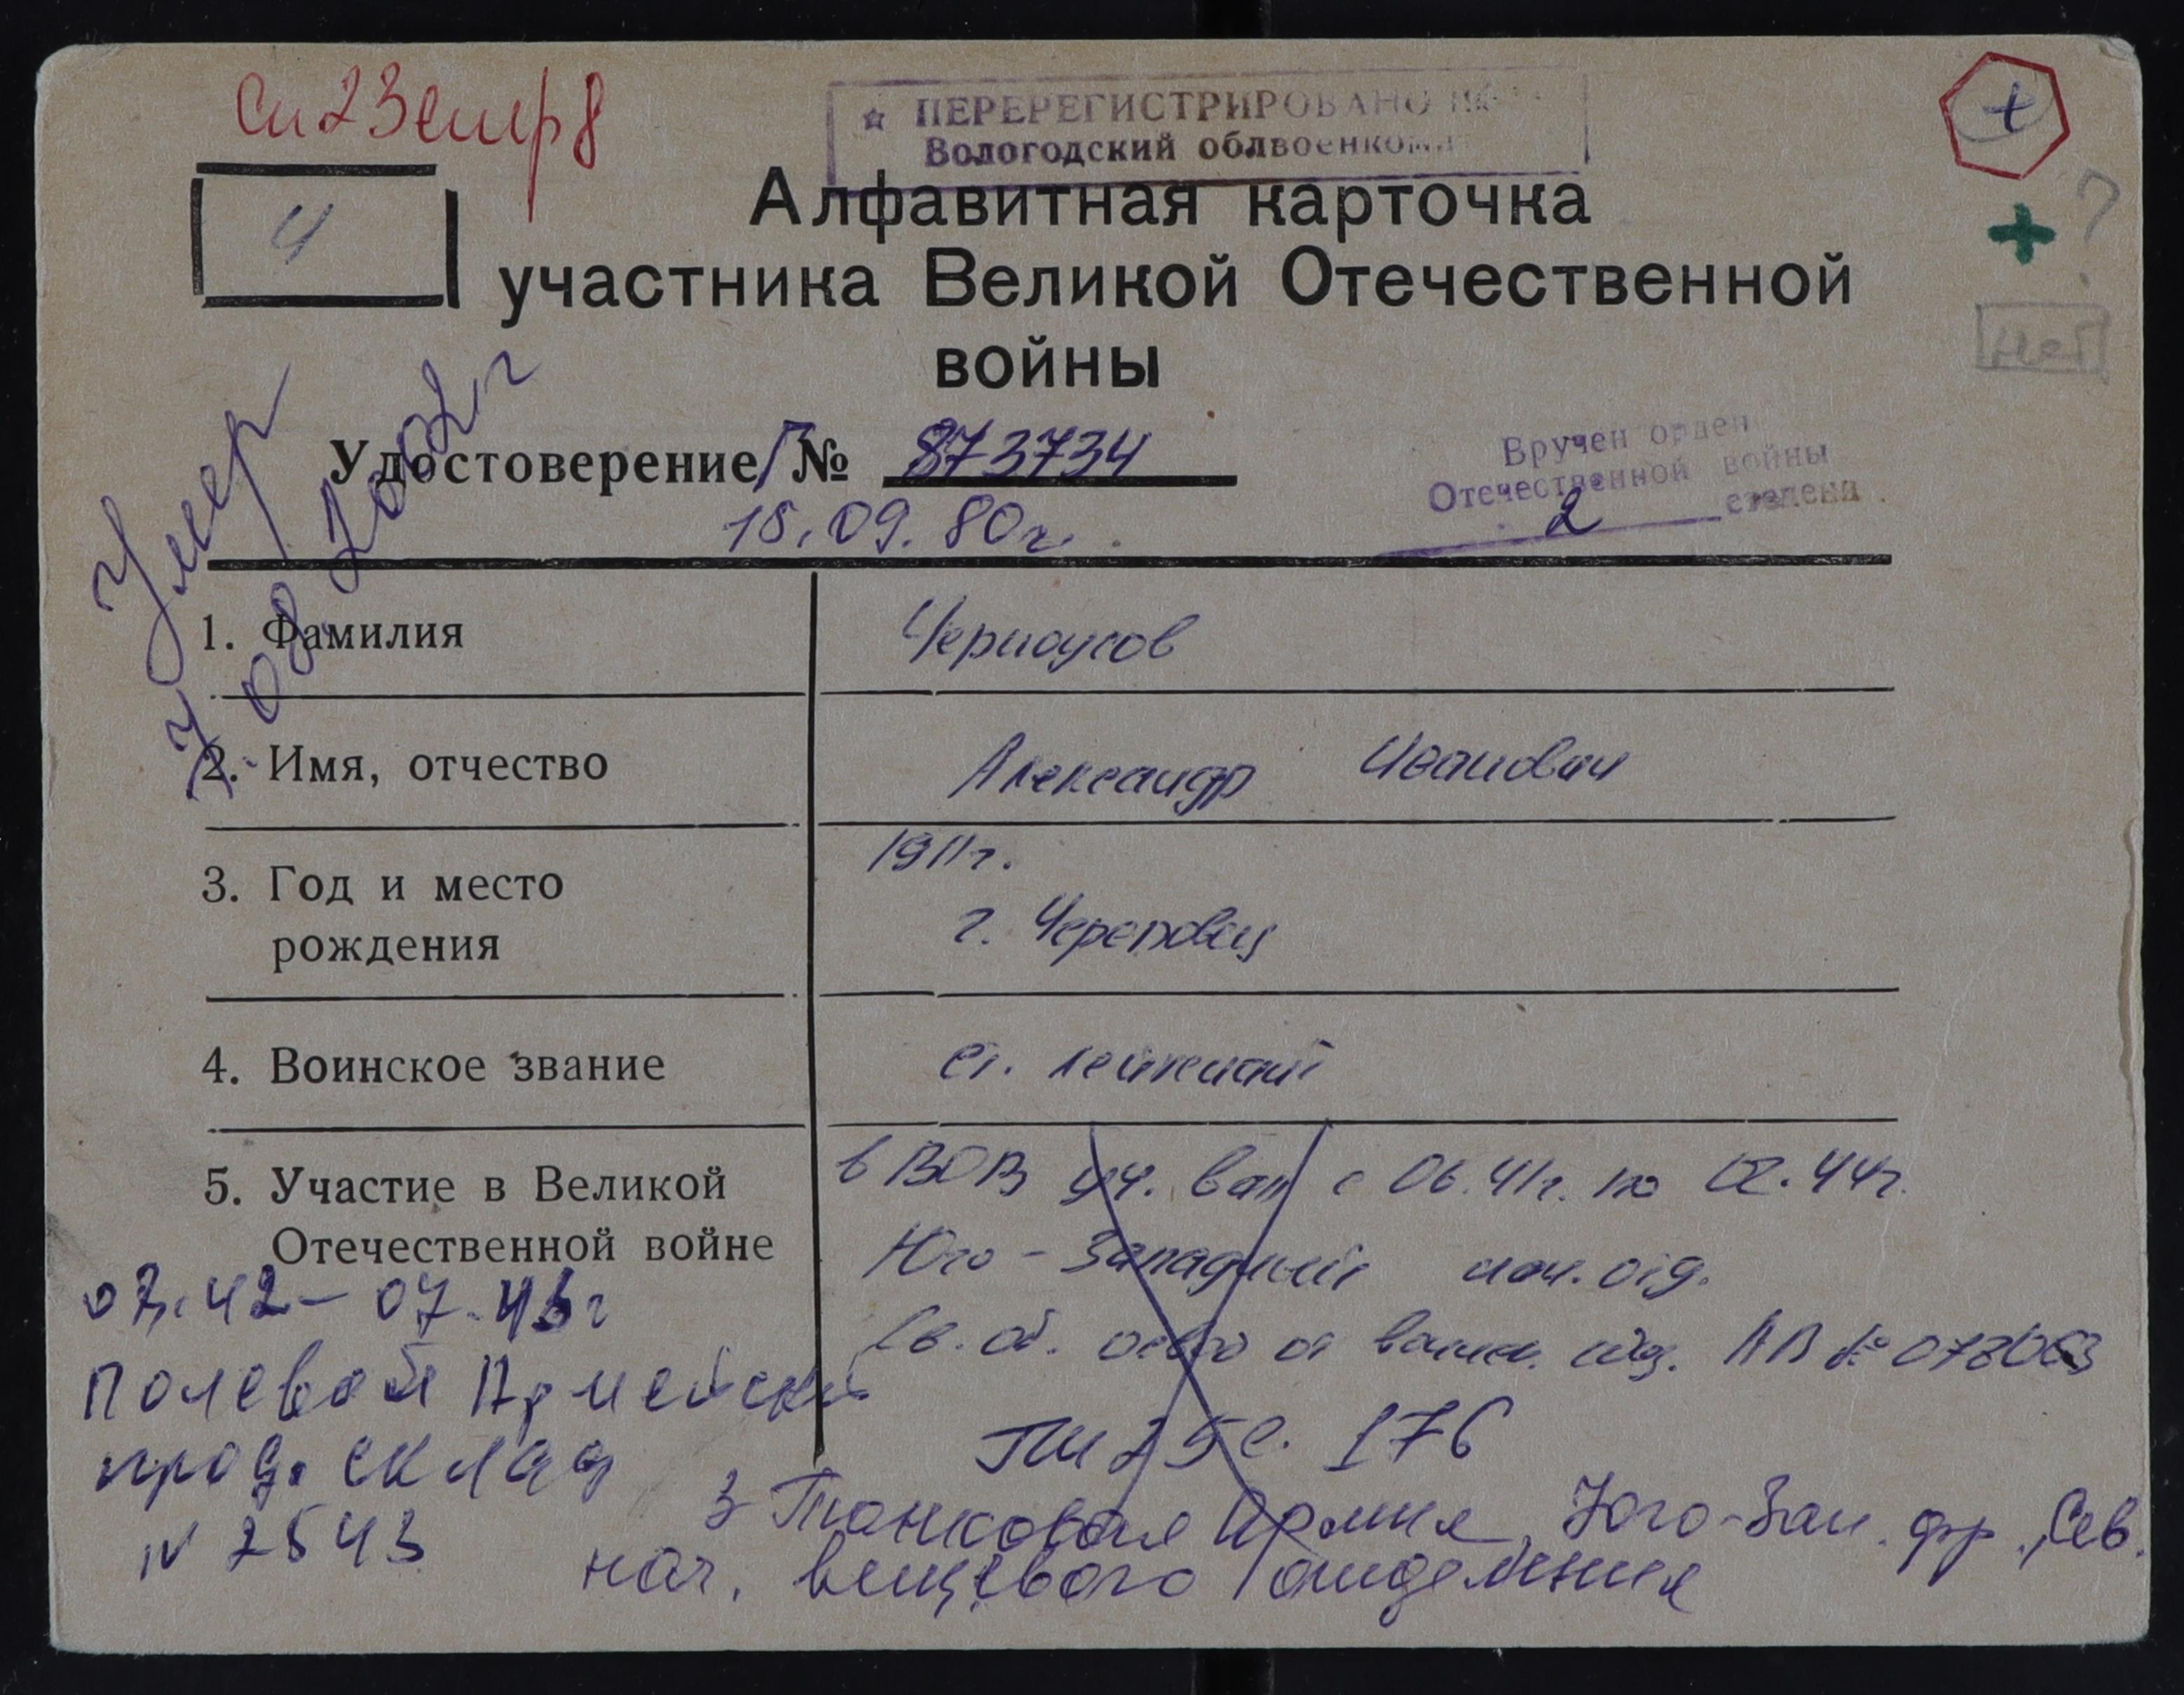 ☆ ПЕРЕРЕГИСТРИРОВАНО
Вологодский облвоенком
+
+ ?
нет
Ч
Алфавитная карточка
участника Великой Отечественной
войны
Умер
7.08.2002г
Удостоверение Г №
873734
15.09.80г.
Вручен орден
Отечественной войны
2 степени
1. Фамилия
Черноусов
2. Имя, отчество
Александр Иванович
3. Год и место
рождения
1911г.
г. Череповец
4. Воинское звание
ст. лейтенант
5. Участие в Великой
Отечественной войне
в ВОВ уч. с 06.41г. по 02.44г.
Юго-Западный нач. отд.
Св. об. АП № 078063
07.43г
Полевой Армейский
прод. склад
N 2543
176
3 Танковая Армия, Юго-Зап. фр., Сев.
нач. вещевого отделения